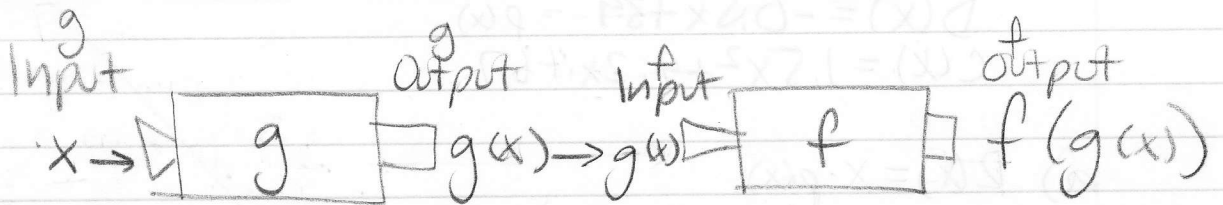 g g f f
Input Output Input output
x → g g(x) → g(x) f f(g(x))